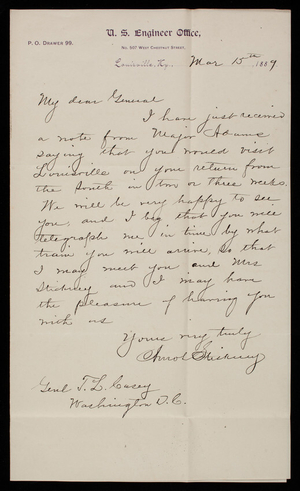 U. S. Engineer Office,
P. O. DRAWER 99.
No. 637 West Chestnut Street,
Louisville, Ky. Mar 15th 1889
My dear General
I have just received
a note from Major Adams
saying that you would visit
Louisville on your return from
the South in two or three weeks.
We will be very happy to see
you, and I beg that you will
telegraph me in time by what
train you will arrive, so that
I may meet you and Mrs
Stickney and I may have
the pleasure of having you
with us
Yours very truly
Amos Stickney
Genl T. L. Casey
Washington D.C.